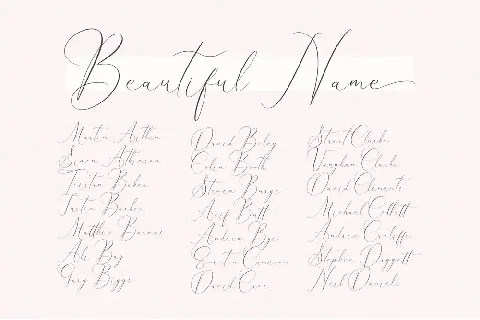 Beautiful Name
Martin Arthur
Simon Atkinson
Tristin Baker
Justin Barker
Matthew Barnes
Ali Bay
Gary Biggs
David Bilsy
Colin Bath
Steven Burge
Arif Butt
Andrew Bye
Cameron
David Cane
Stuart Clarke
Vaughan Clarke
David Clements
Michael Collett
Andrew Cunliffe
Stephen Doggett
Neil Daniels